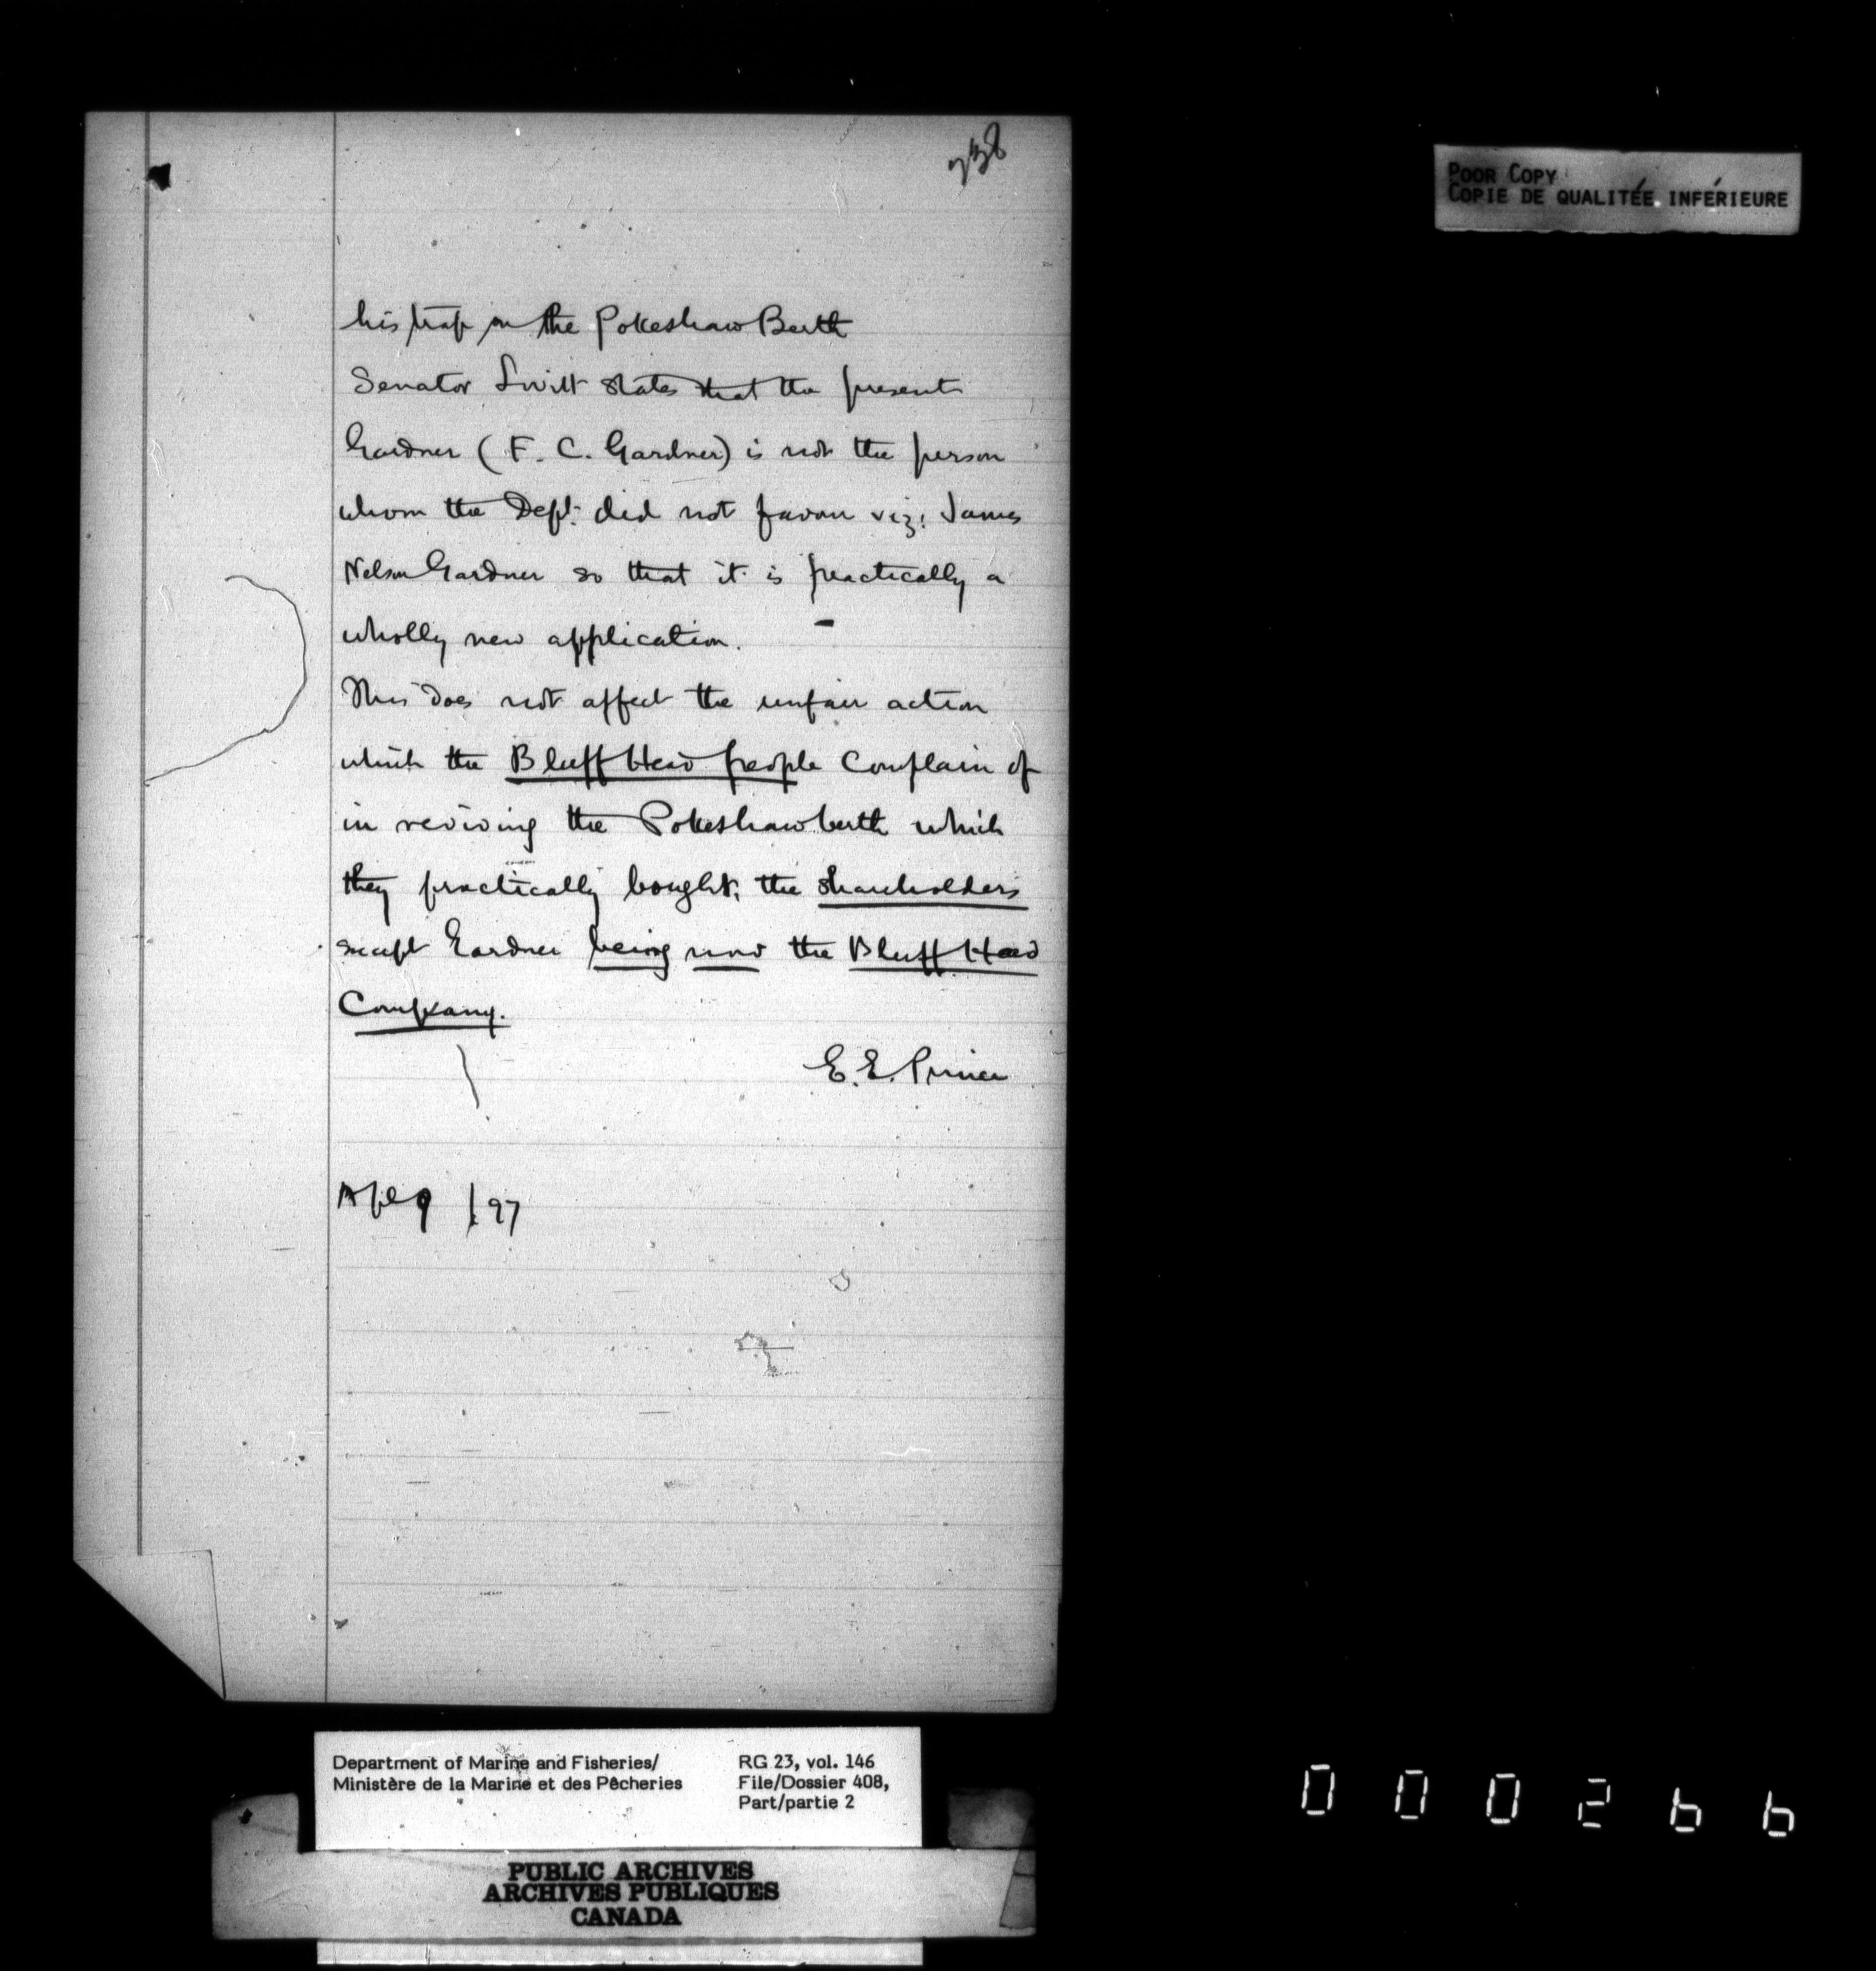 238
POOR COPY
COPIE DE QUALITÉE INFÉRIEURE
his trap on the Pokeshaw Berth
Senator states that the present
Gardner (F. C. Gardner) is not the person
whom the Dept. did not favour viz: James
Nelson Gardner so that it is practically a
wholly new application.
This does not affect the unfair action
which the Bluff Head people complain of
in reviving the Pokeshaw berth which
they practically bought, the shareholders
except Gardner being now the Bluff Head
Company.
E. E. Prince
Apl 9 / 97
Department of Marine and Fisheries/
Ministère de la Marine et des Pêcheries
RG 23, vol. 146
File/Dossier 408,
Part/partie 2
PUBLIC ARCHIVES
ARCHIVES PUBLIQUES
CANADA
000266